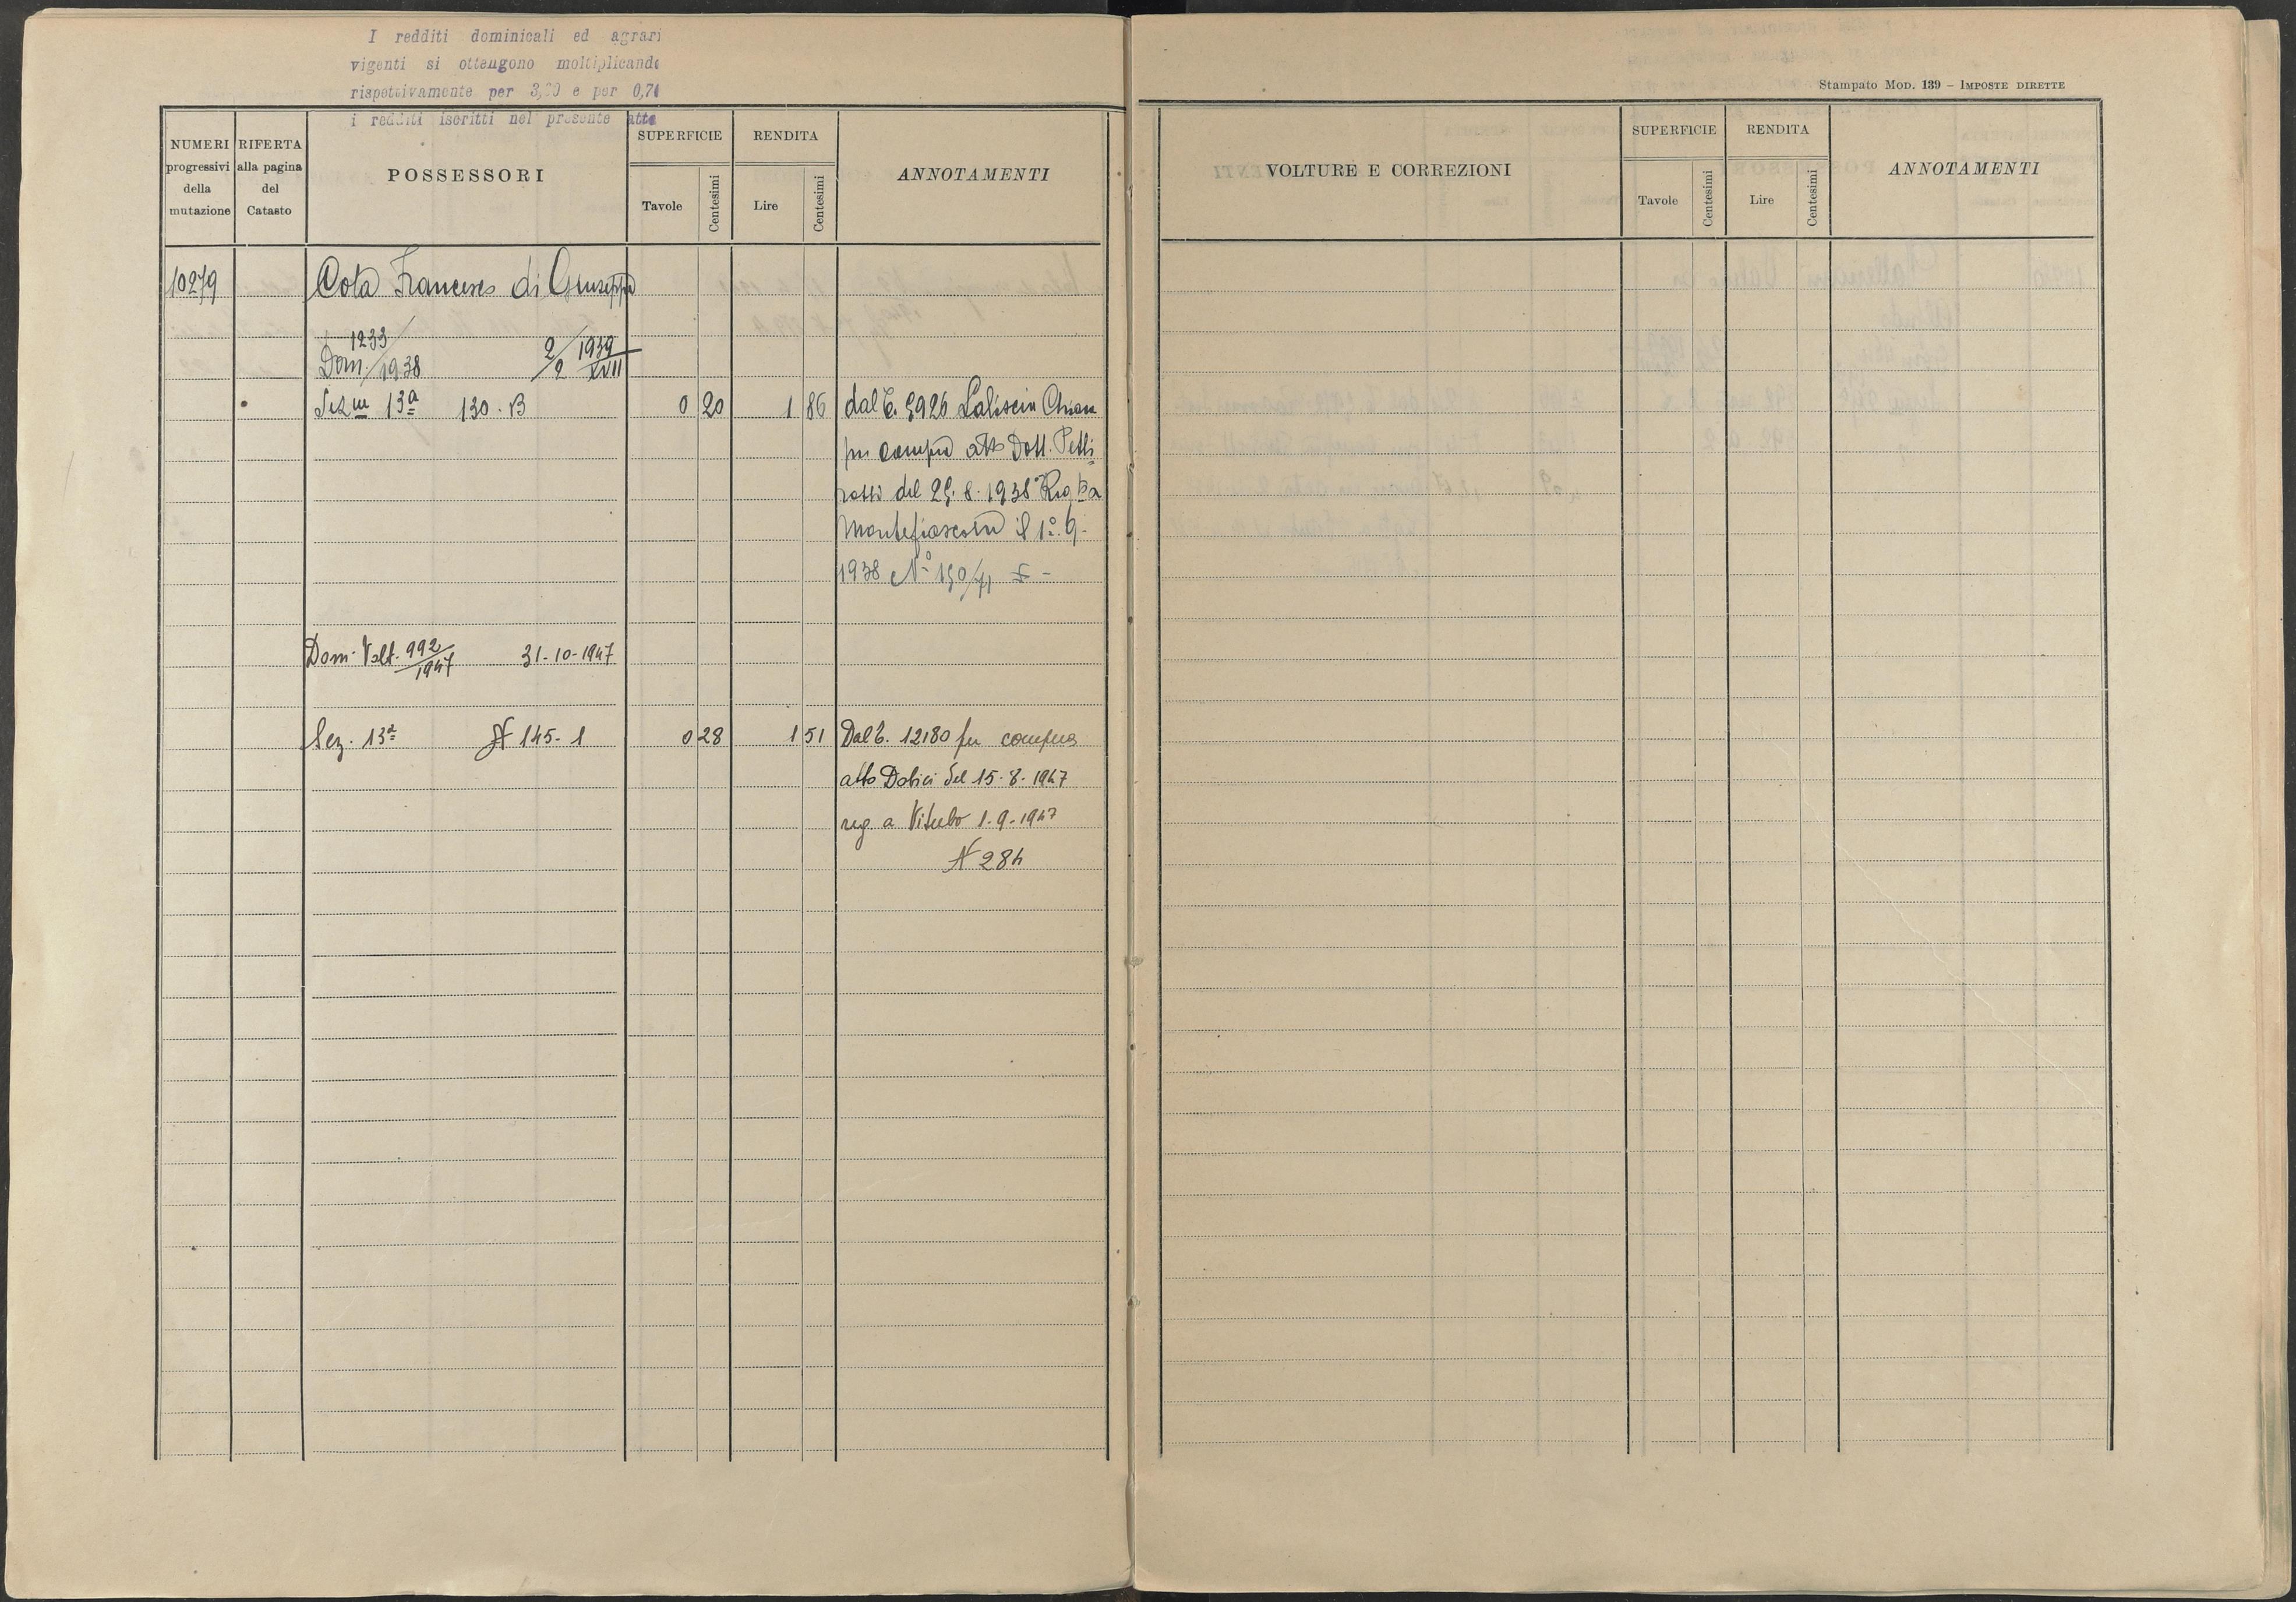 I redditi dominicali ed agrari
vigenti si ottengono moltiplicando
rispettivamente per 3,20 e per 0,74
i redditi iscritti nel presente atto
NUMERI progressivi della mutazione
RIFERTA alla pagina del Catasto
POSSESSORI
SUPERFICIE
Tavole
Centesimi
RENDITA
Lire
Centesimi
ANNOTAMENTI
10279
Cota Francesco di Giuseppe
Dom. 1233/1938 2/2 1939 XVII
Sezne 13ª 130. B 0 20 1 86 dal C. 5926
per compra atto Dott. Petti
rossi del 25. 8. 1938 Reg to a
Montefiascone il 1º. 9.
1938 Nº 150/71
Dom. Volt. 992/1947 31-10-1947
Sez. 13ª N 145-1 0 28 1 51 Dal C. 12180 per compra
atto Dobici del 15-8-1947
reg a Viterbo 1-9-1947
N 284
Stampato MOD. 139 – IMPOSTE DIRETTE
VOLTURE E CORREZIONI
SUPERFICIE
Tavole
Centesimi
RENDITA
Lire
Centesimi
ANNOTAMENTI